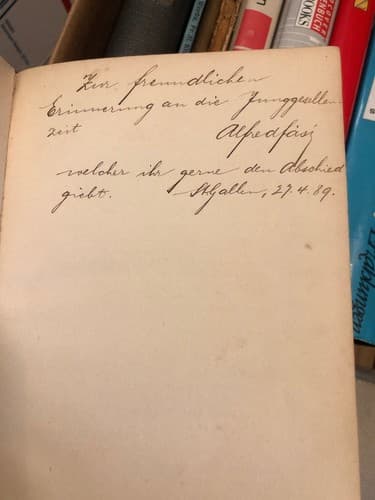 Zur freundlichen
Erinnerung an die Junggesellen-
zeit
Alfred
welcher ihr gerne den Abschied
giebt. St.Gallen, 27.4.89.
BOOKS